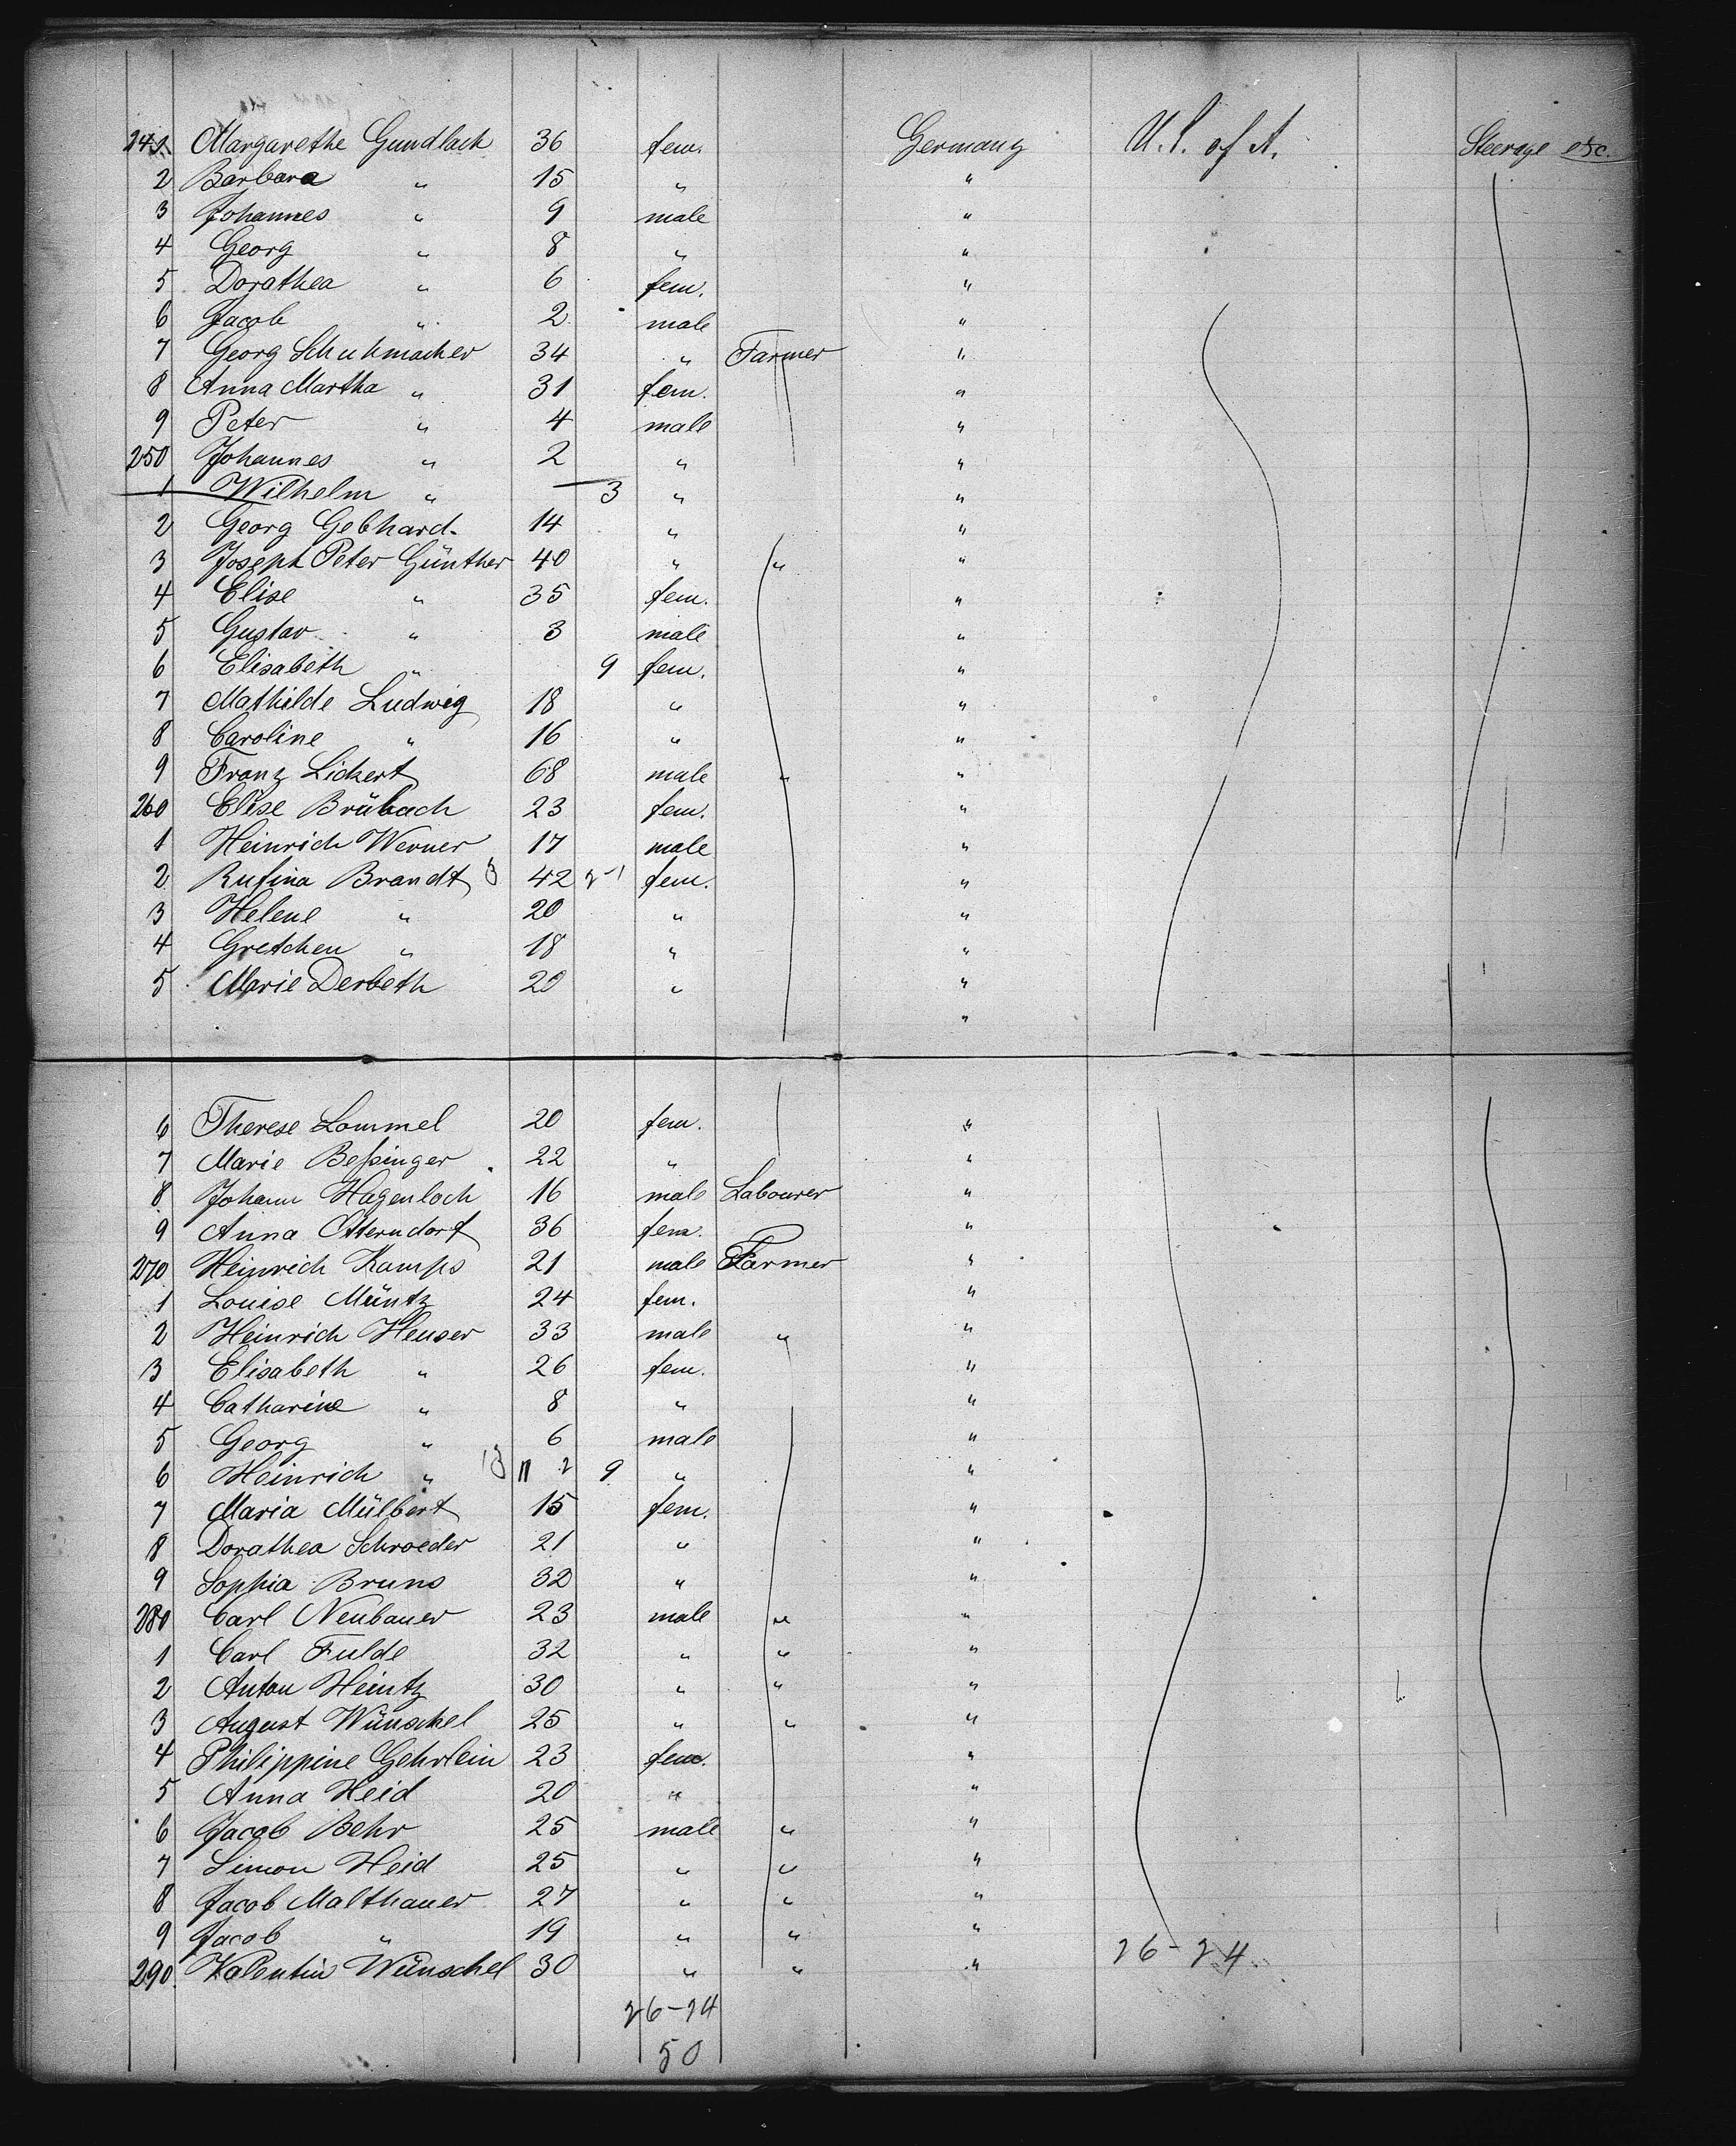 241. Margarethe Gundlach 36 fem. Germany U.S. of A. Steerage etc.
2 Barbara " 15 " "
3 Johannes " 9 male "
4 Georg " 8 " "
5 Dorathea " 6 fem. "
6 Jacob " 2 male "
7 Georg Schuhmacher 34 " Farmer "
8 Anna Martha " 31 fem. "
9 Peter " 4 male "
250 Johannes " 2 " "
1 Wilhelm " 3 " "
2 Georg Gebhard. 14 " "
3 Joseph Peter Günther 40 " " "
4 Elise " 35 fem. "
5 Gustav " 3 male "
6 Elisabeth " 9 fem. "
7 Mathilde Ludwig 18 " "
8 Caroline " 16 " "
9 Franz Lickert 68 male " "
260 Elise Brübach 23 fem. "
1 Heinrich Werner 17 male "
2 Rufina Brandt 42 fem. "
3 Helene " 20 " "
4 Gretchen " 18 " "
5 Marie Derbeth 20 " "
"
6 Therese Lommel 20 fem. "
7 Marie Beßinger 22 " "
8 Johann Hagenloch 16 male Labourer "
9 Anna Otterndorf 36 fem. "
270 Heinrich Kamps 21 male Farmer "
1 Louise Müntz 24 fem. "
2 Heinrich Heuser 33 male " "
3 Elisabeth " 26 fem. "
4 Catharine " 8 " "
5 Georg " 6 male "
6 Heinrich " 9 " "
7 Maria Mülbert 15 fem. "
8 Dorathea Schroeder 21 " "
9 Sophia Bruns 32 " "
280 Carl Neubauer 23 male " "
1 Carl Fulde 32 " " "
2 Anton Heintz 30 " " "
3 August Wünschel 25 " " "
4 Philippine Gehrlein 23 fem. "
5 Anna Heid 20 " "
6 Jacob Behr 25 male " "
7 Simon Heid 25 " " "
8 Jacob Malthaner 27 " " "
9 Jacob " 19 " " "
290. Valentin Wünschel 30 " " " 26-24
26-24
50